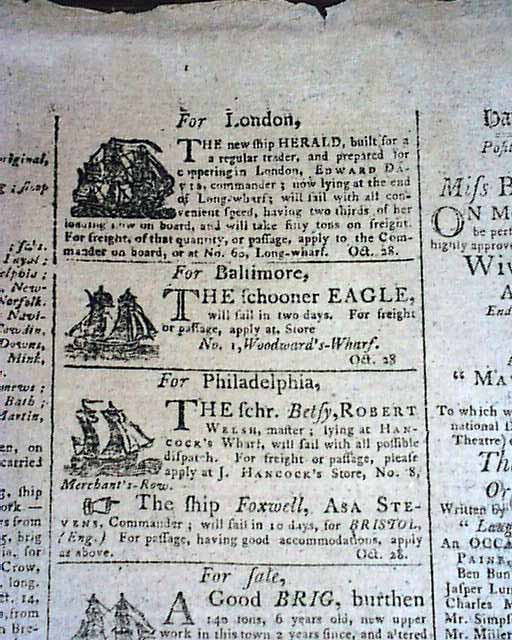 original,
For London,
THE new ship HERALD, built for a
a regular trader, and prepared for
coppering in London, EDWARD DA-
VIS, commander; now lying at the end
of Long-wharf; will sail with all con-
venient speed, having two thirds of her
loading now on board, and will take fifty tons on freight.
For freight, of that quantity, or passage, apply to the Com-
mander on board, or at No. 60, Long-wharf. Oct. 28.
For Baltimore,
THE schooner EAGLE,
will sail in two days. For freight
or passage, apply at Store
No. 1, Woodward's-Wharf.
Oct. 28
For Philadelphia,
THE schr. Betsy, ROBERT
WELSH, master; lying at HAN-
COCK's Wharf, will sail with all possible
dispatch. For freight or passage, please
apply at J. HANCOCK's Store, No. 8,
Merchant's-Row.
The ship Foxwell, ASA STE-
VENS, Commander; will sail in 10 days, for BRISTOL,
(Eng.) For passage, having good accommodations, apply
as above. Oct. 28.
For sale,
A Good BRIG, burthen
140 tons, 6 years old, new upper
work in this town 2 years since, and
New-
Norfolk.
Navi-
Downs,
Mink,
Bath;
Martin,
en, on
carried
ship
york —
from
brig
for
Crow,
long.
from
Miss B
ON M
be perf
highly approve
"MA
To which w
national
Theatre)
Th
Or
Written by
An OCCA
PAINE,
Ben Bun
Jasper Lun
Charles M
Mr. Simps